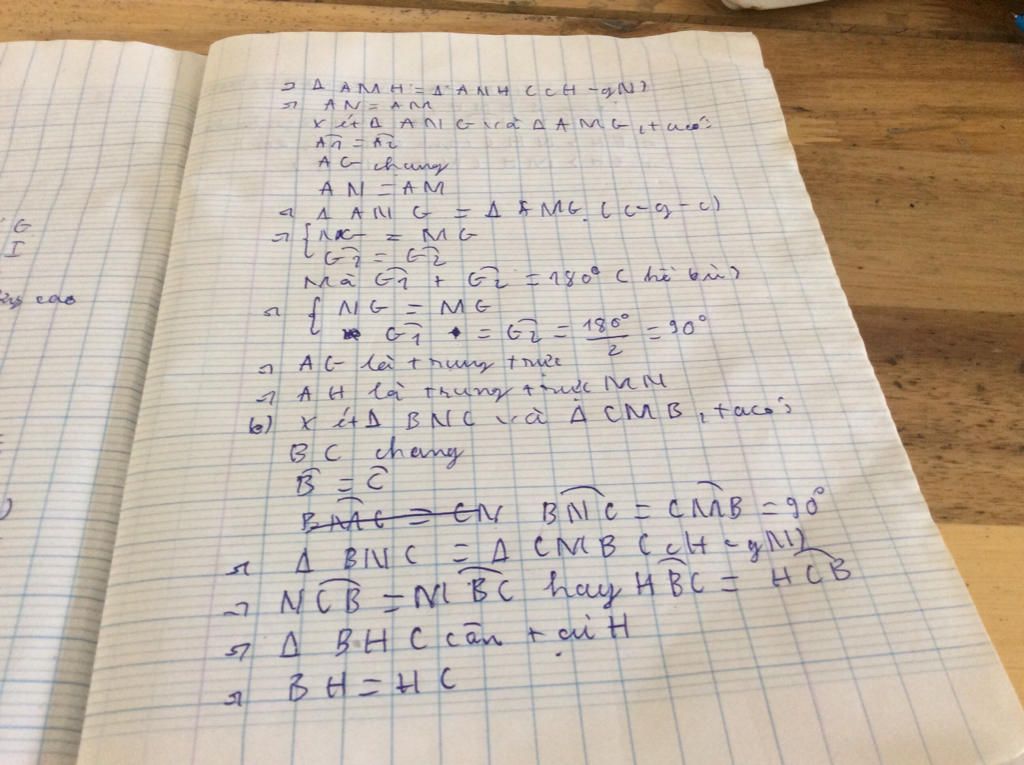 G
I
cao
=> Δ AMH = Δ ANH (cH - gN)
=> AN = AM
Xét Δ ANG và Δ AMG, ta có:
Â1 = Â2
AG chung
AN = AM
=> Δ ANG = Δ AMG (c-g-c)
=> { NG = MG
Ĝ1 = Ĝ2
Mà Ĝ1 + Ĝ2 = 180° (kề bù)
=> { NG = MG
Ĝ1 = Ĝ2 = 180°/2 = 90°
=> AG là trung trực
=> AH là trung trực MN
b) Xét Δ BNC và Δ CMB, ta có:
BC chung
B̂ = Ĉ
BNC = CMB = 90°
=> Δ BNC = Δ CMB (cH - gN)
=> NCB = MBC hay HBC = HCB
=> Δ BHC cân tại H
=> BH = HC